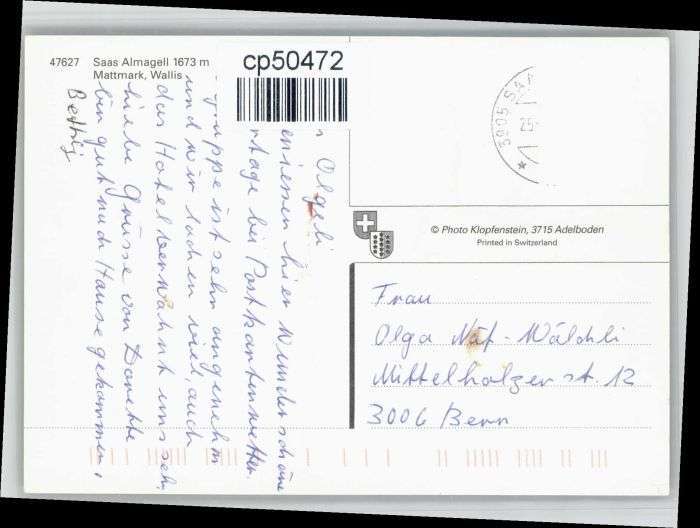 47627 Saas Almagell 1673 m
Mattmark, Wallis
cp50472
Olgeli
geniessen hier wunderschöne
bei Postkartenwetter.
ist sehr angenehm
und wir lachen viel, auch
das Hotel verwöhnt uns sehr.
Liebe Grüsse von Danette
bin gut nach Hause gekommen,
3905 SAA
25
© Photo Klopfenstein, 3715 Adelboden
Printed in Switzerland
Frau
Olga Näf-Wälchli
Mittelholzerst. 12
3006 Bern